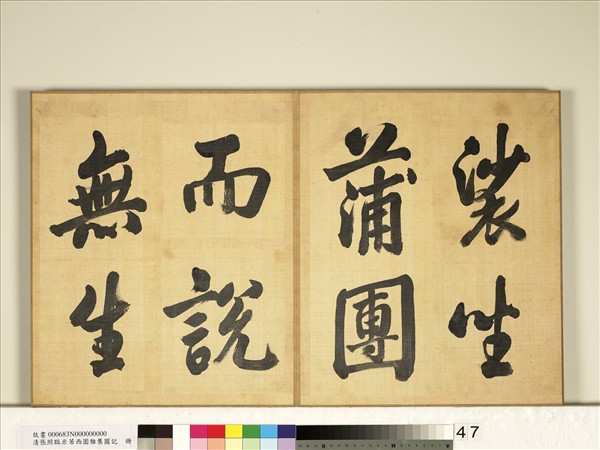 裟坐
蒲團
而說
無生
故書 000683N000000000
清張照臨米芾西園雅集圖記 冊
47